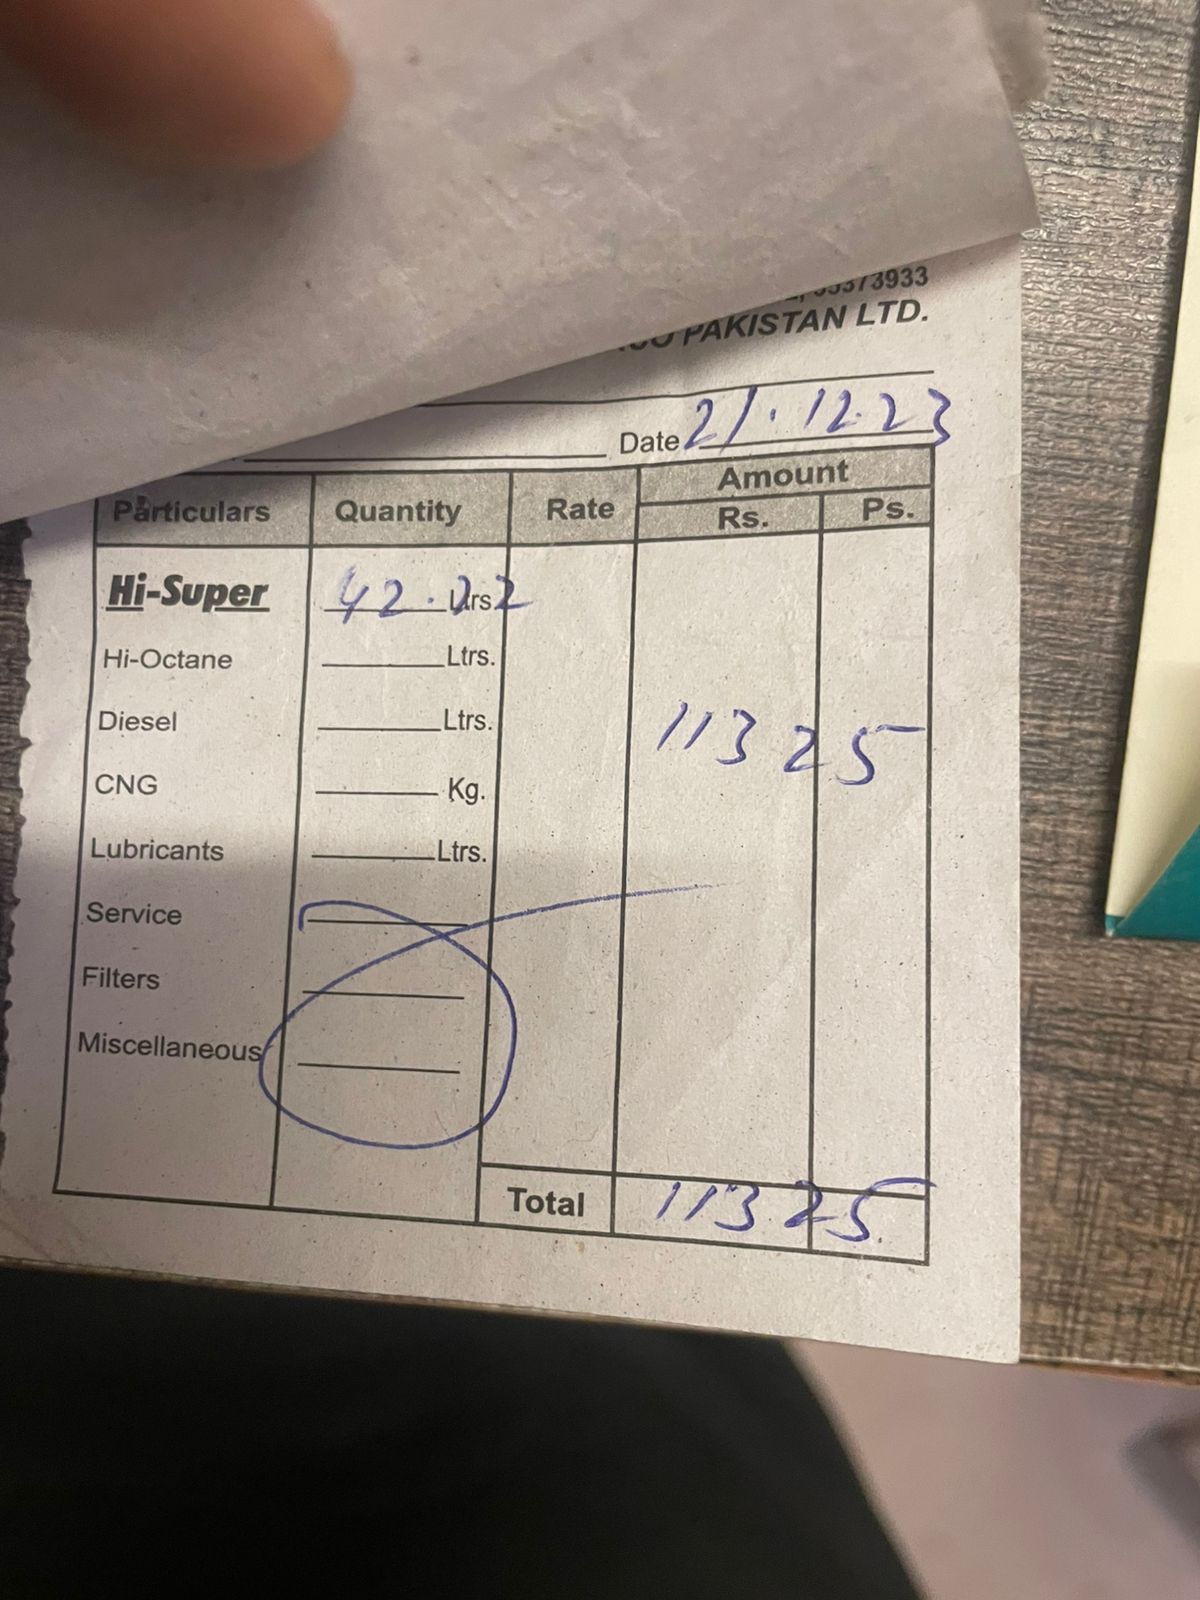 35373933
PAKISTAN LTD.
Date 21.12.23
Particulars Quantity Rate Amount
Rs. Ps.
Hi-Super 42.22 Ltrs
Hi-Octane Ltrs.
Diesel Ltrs. 11325
CNG Kg.
Lubricants Ltrs.
Service
Filters
Miscellaneous
Total 11325